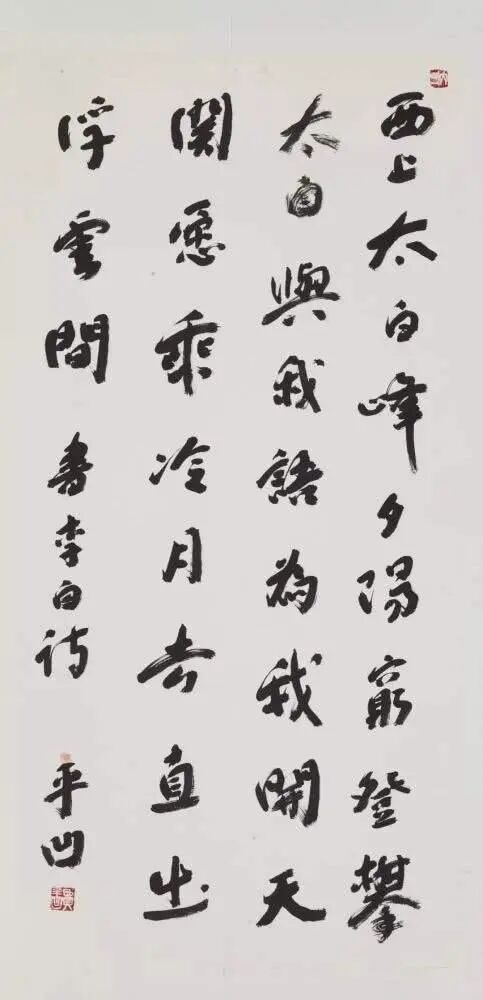 西上太白峰夕陽窮登攀
太白與我語為我開天
関愿乘冷月去直出
浮雲間 書李白詩 平凹